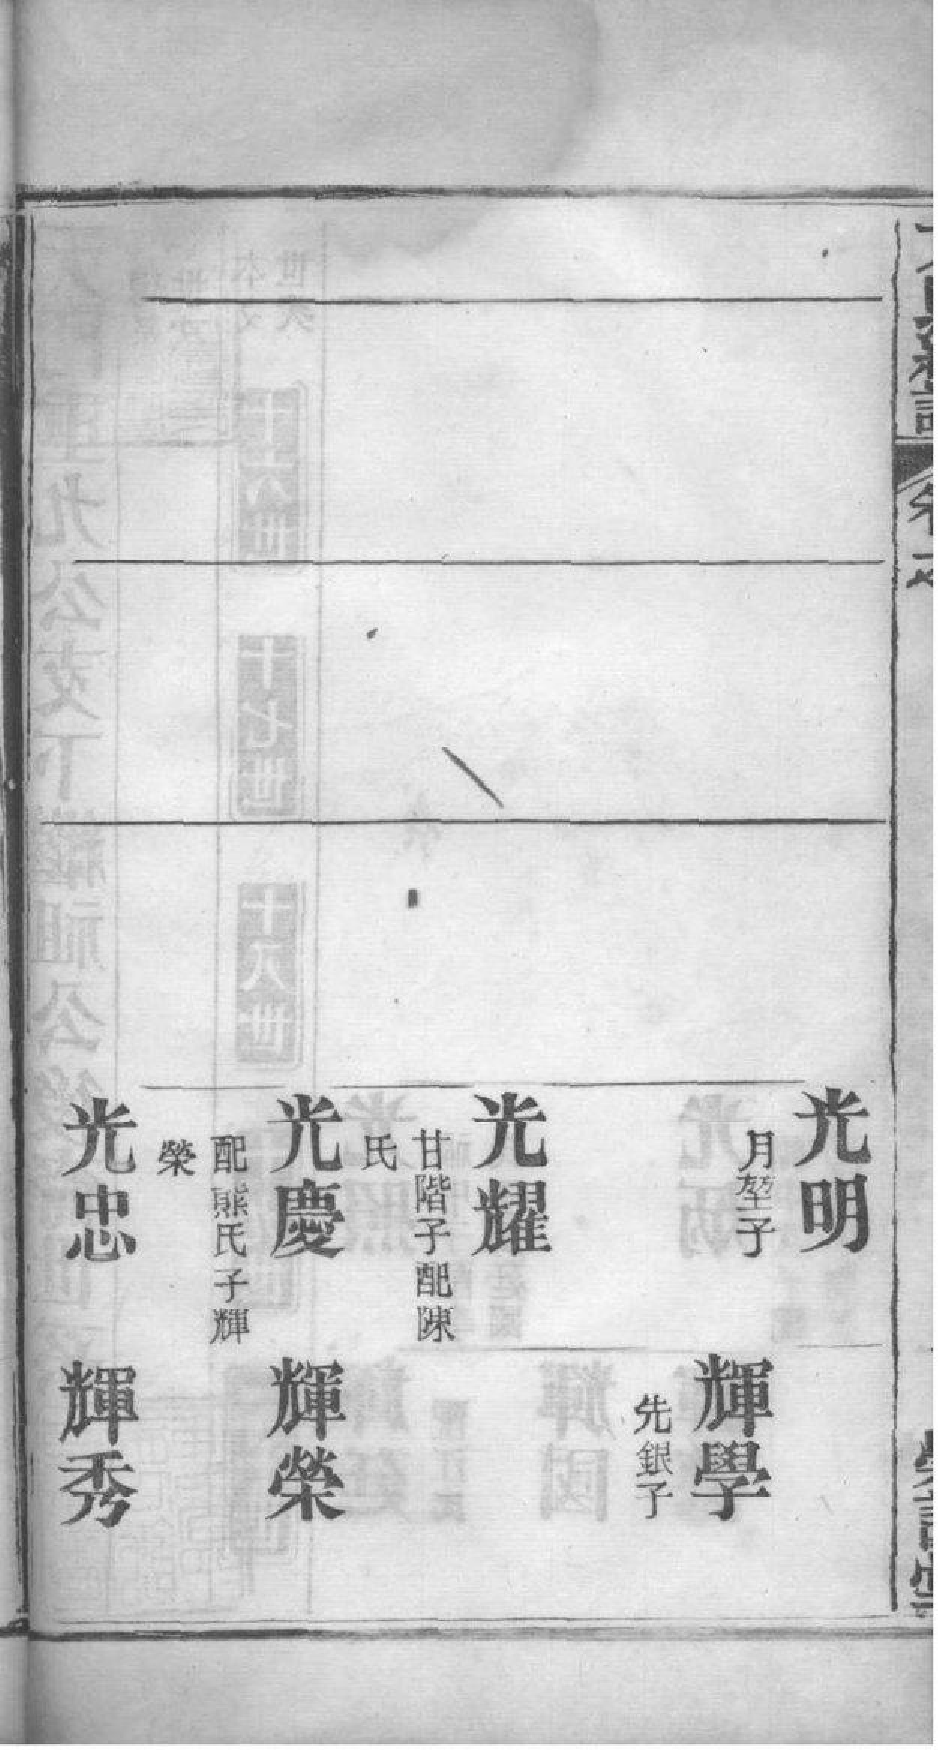 光明
月堃子
光耀
甘階子配陳
氏
光慶
配熊氏子輝
榮
光忠
輝學
先銀子
輝榮
輝秀